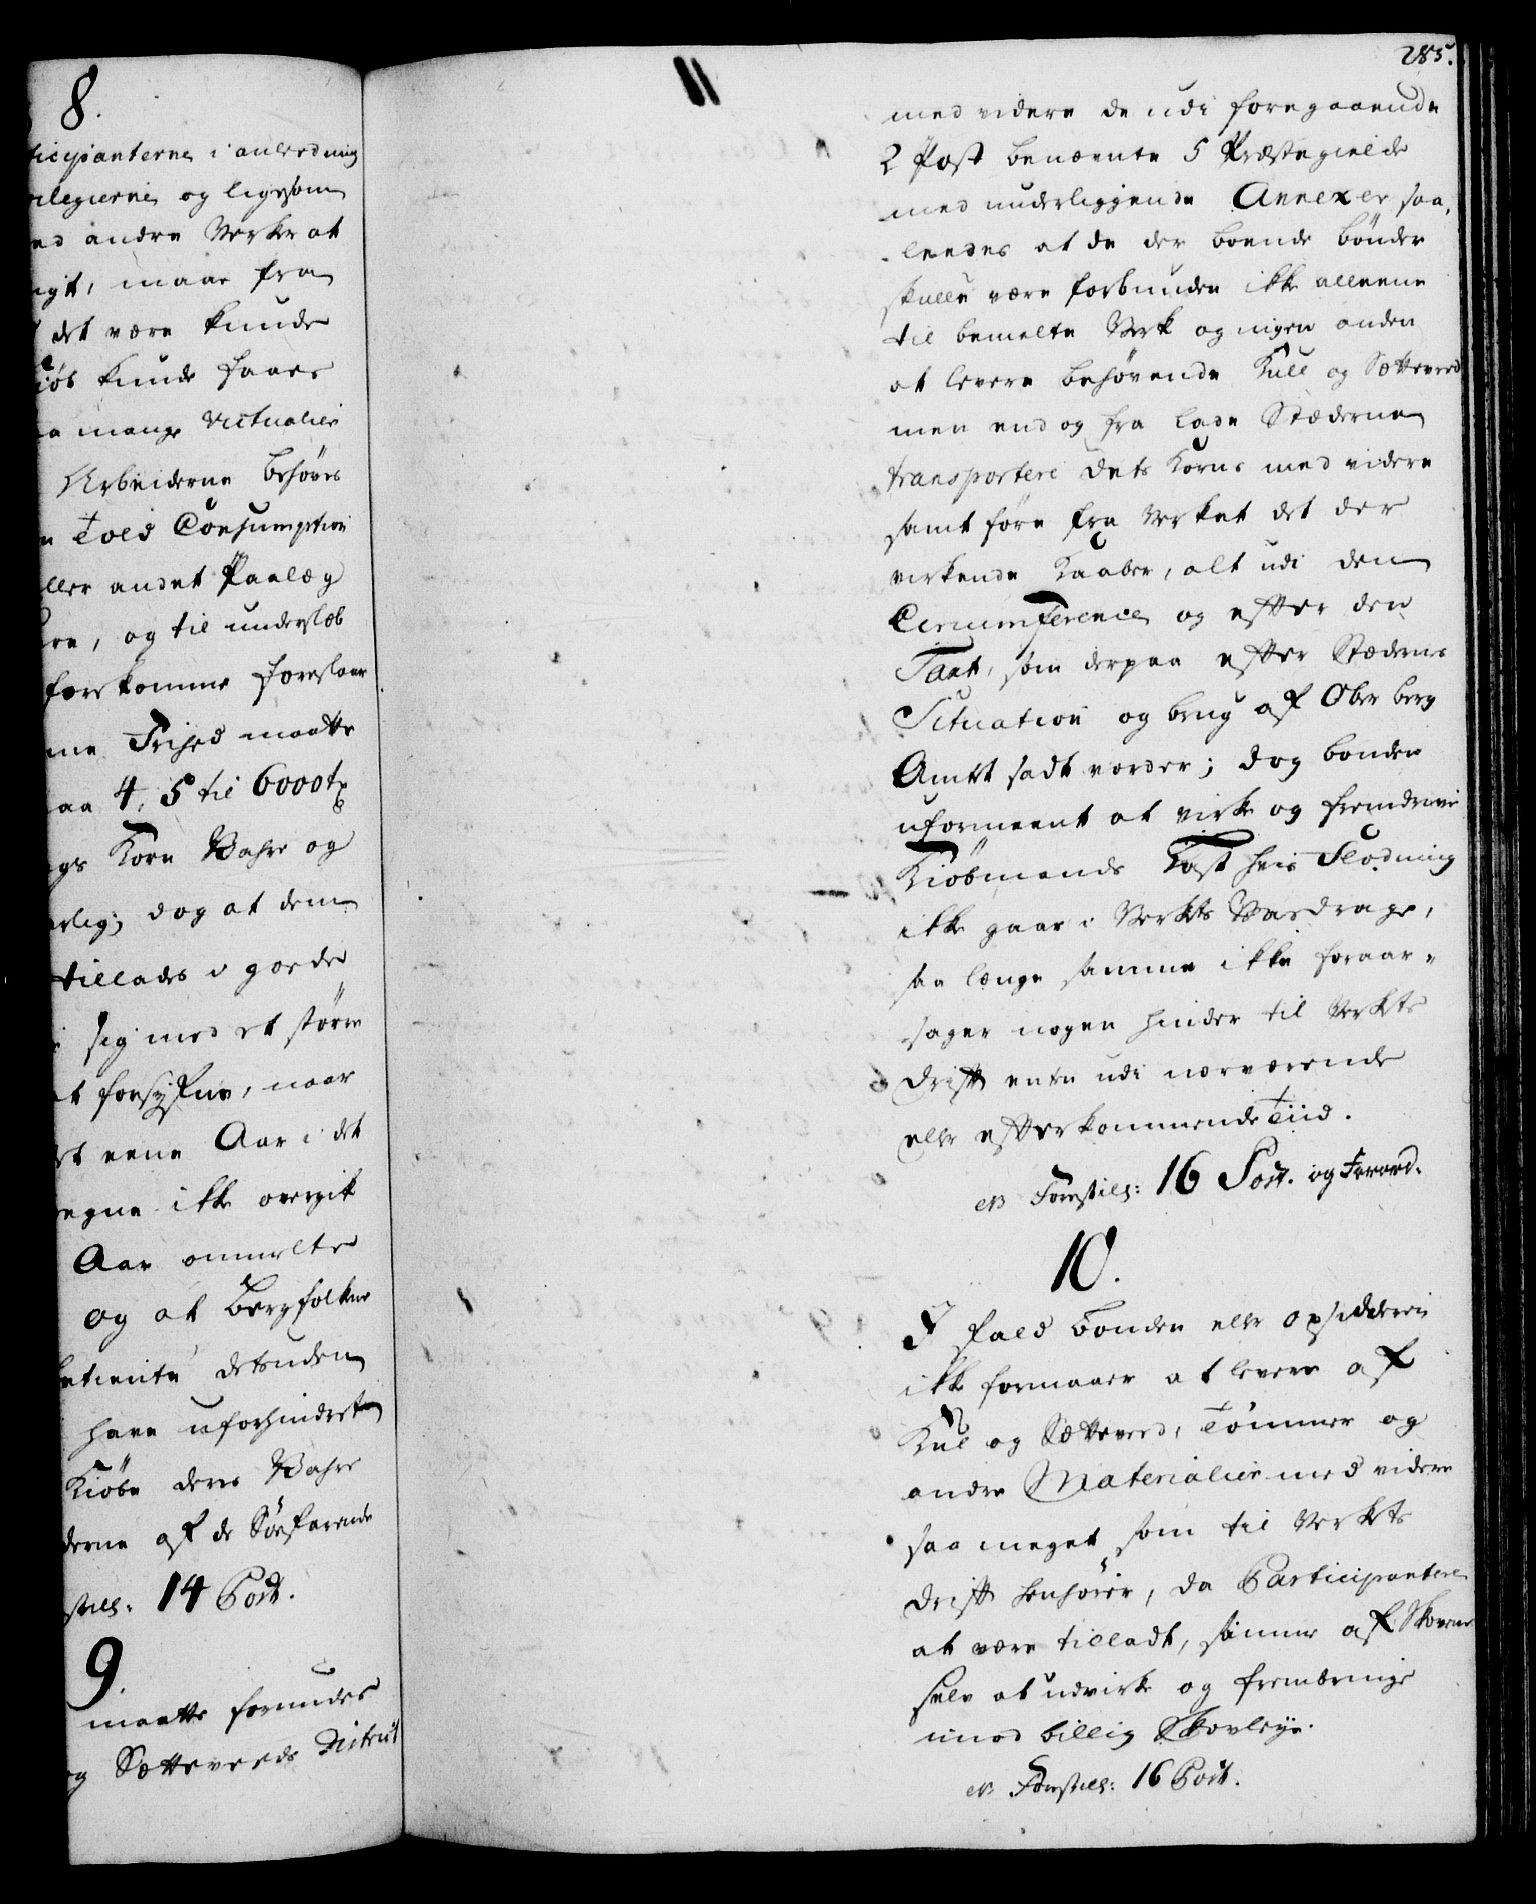 8.
ticipanterne i anledning
vilegierne og ligesom
ed andre Verker at
igt, maae fra
det være kunde
kiøb kunde faaes
a mange Victualier
Arbeiderne behøves
n Told Consumption
ller andet Paalæg
re, og til underslæb
forekomme foreslaaer
me Frihed maatte
aa 4, 5 til 6000 td
gs Korn Vahre og
arlig; dog at dem
tillades i goede
sig med et større
t forsyfne, naar
et eene Aar i det
regne ikke overgik
Aar ommelte
og at Bergfolkene
betiente desuden
have uforhindret
Kiøbe deres Vahre
derne af de Søefarende
still: 14 Post.
9.
maatte forundes
g Sætteveeds District
285.
med videre de udi foregaaende
2 Post benævnte 5 Præstegielde
med underliggende Annexer saa,
ledes at de der boende bønder
skulle være forbunden ikke alleene
til bemelte Verk og ingen anden
at levere behøvende Kull og Sætteveed
men end og fra Lade Stæderne
transportere dets Korns med videre
samt føre fra Verket det der
virkende Kaaber, alt udi den
Circumference og efter den
Taxt, som derpaa efter Stædernes
Situation og brug af Ober berg
Amtet sadt vorder; dog bonden
uformeent at virke og fremdrive
Kiøbmands Last hvis Flødning
ikke gaar i Verkets Vasdrage,
saa længe samme ikke foraar-
sager nogen hinder til Verkets
Drift enten udi nærværende
eller efterkommende Tiid.
NB Forestill: 16 Post. og Forord.
10.
I fald bonden eller opsidderen
ikke formaaer at levere af
Kul og Sætteveed, Tømmer og
andre Materialier med videre
saa meget som til Verkets
Drift henhører, da Participantere
at være tilladt, samme af Skovene
selv at udvirke og frembringe
imod billig Skovleye.
NB Forestill: 16 Post.